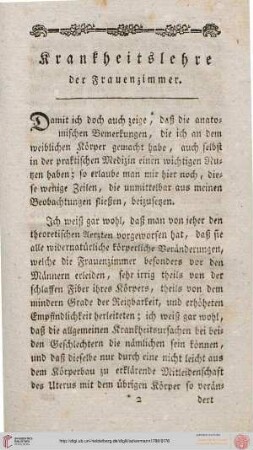 Krankheitslehre
der Frauenzimmer.
Damit ich doch auch zeige, daß die anato-
mischen Bemerkungen, die ich an dem
weiblichen Körper gemacht habe, auch selbst
in der praktischen Medizin einen wichtigen Nu-
tzen haben; so erlaube man mir hier noch, die-
se wenige Zeilen, die unmittelbar aus meinen
Beobachtungen fließen, beizusetzen.
Ich weiß gar wohl, daß man von jeher den
theoretischen Aerzten vorgeworfen hat, daß sie
alle widernatürliche körperliche Veränderungen,
welche die Frauenzimmer besonders vor den
Männern erleiden, sehr irrig theils von der
schlaffen Fiber ihres Körpers, theils von dem
mindern Grade der Reitzbarkeit, und erhöheten
Empfindlichkeit herleiteten; ich weiß gar wohl,
daß die allgemeinen Krankheitsursachen bei bei-
den Geschlechtern die nämlichen sein können,
und daß dieselbe nur durch eine nicht leicht aus
dem Körperbau zu erklärende Mitleidenschaft
des Uterus mit dem übrigen Körper so verän-
* 2 dert
UNIVERSITÄTS-
BIBLIOTHEK
HEIDELBERG